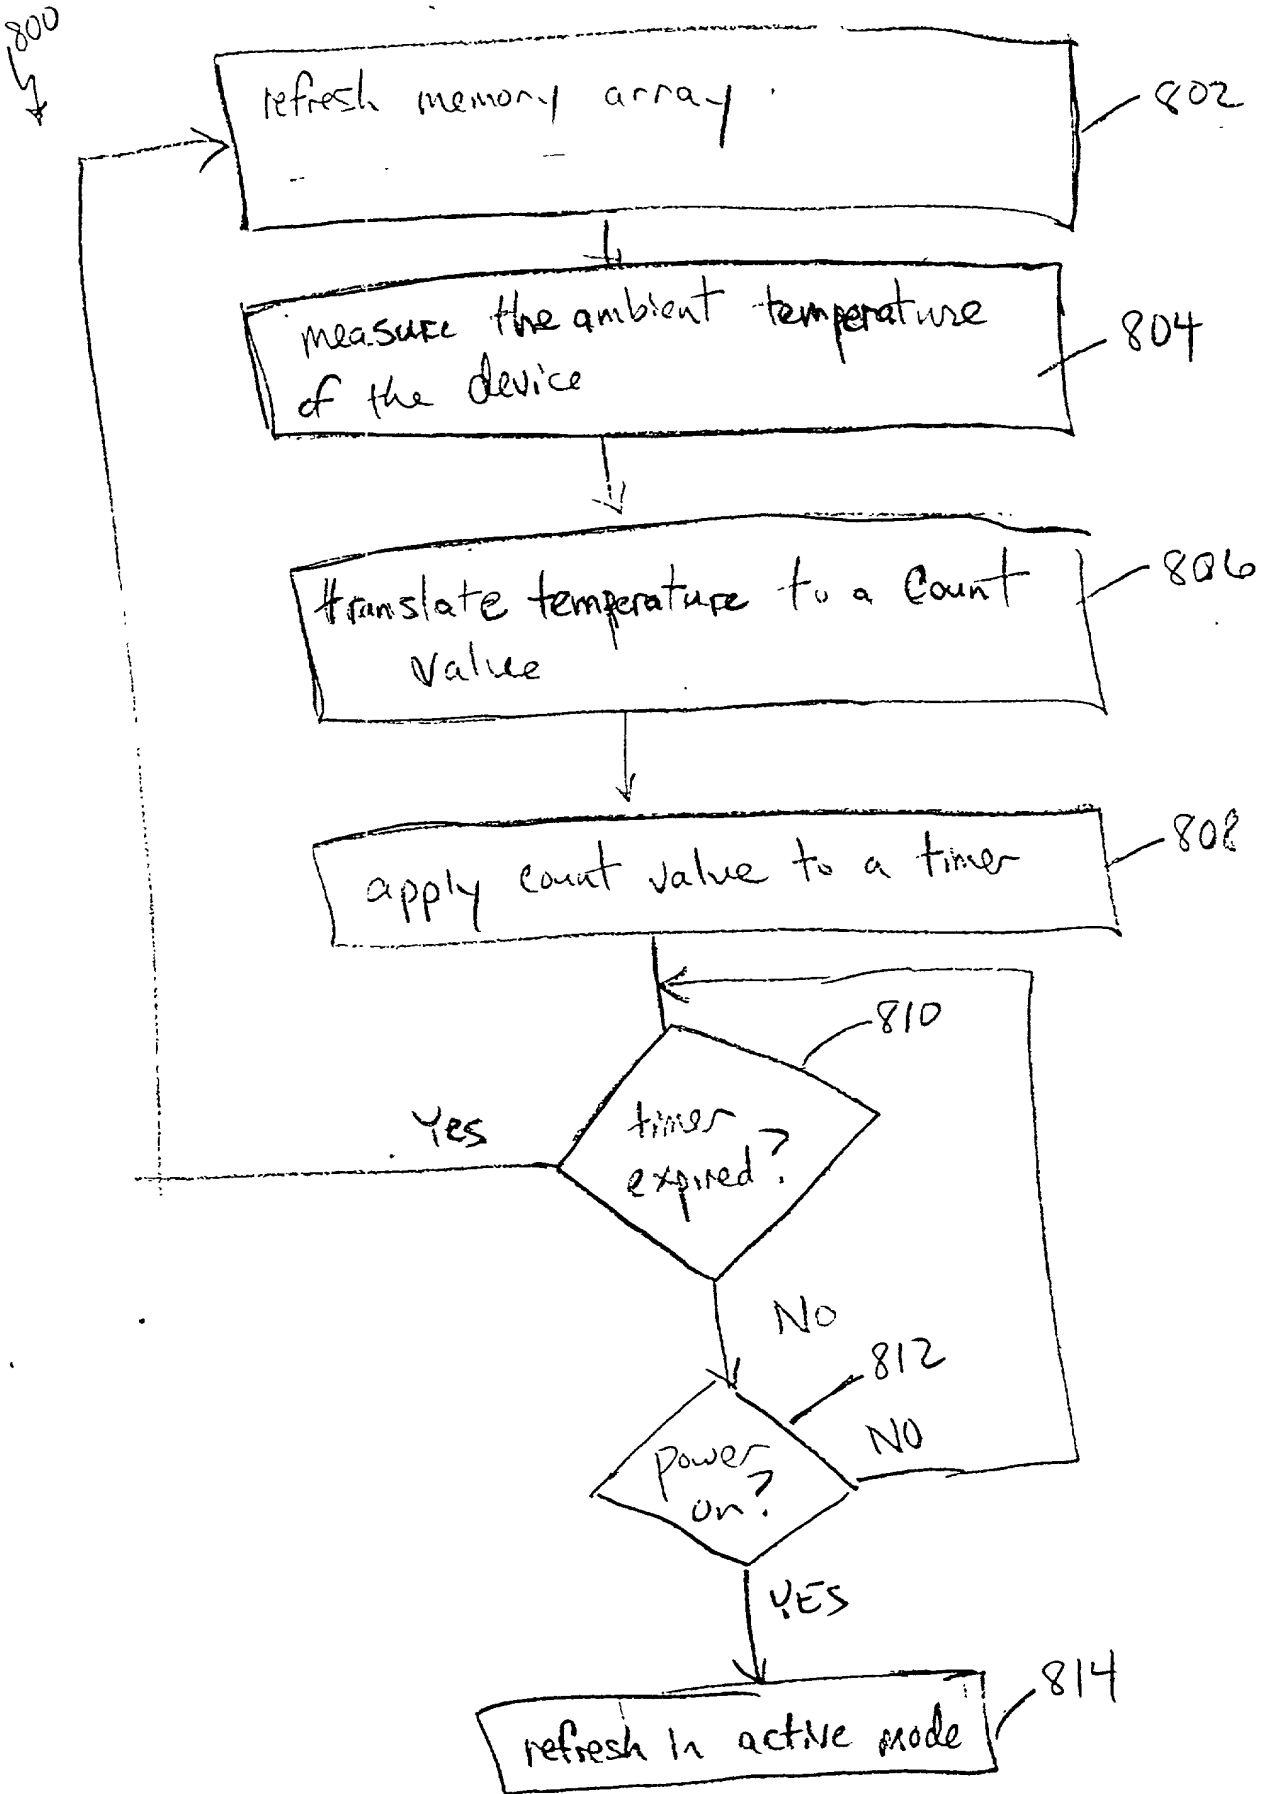 800
refresh memory array
802
measure the ambient temperature
of the device
804
translate temperature to a count
value
806
apply count value to a timer
808
810
timer
expired?
Yes
NO
812
power
on?
NO
YES
814
refresh in active mode